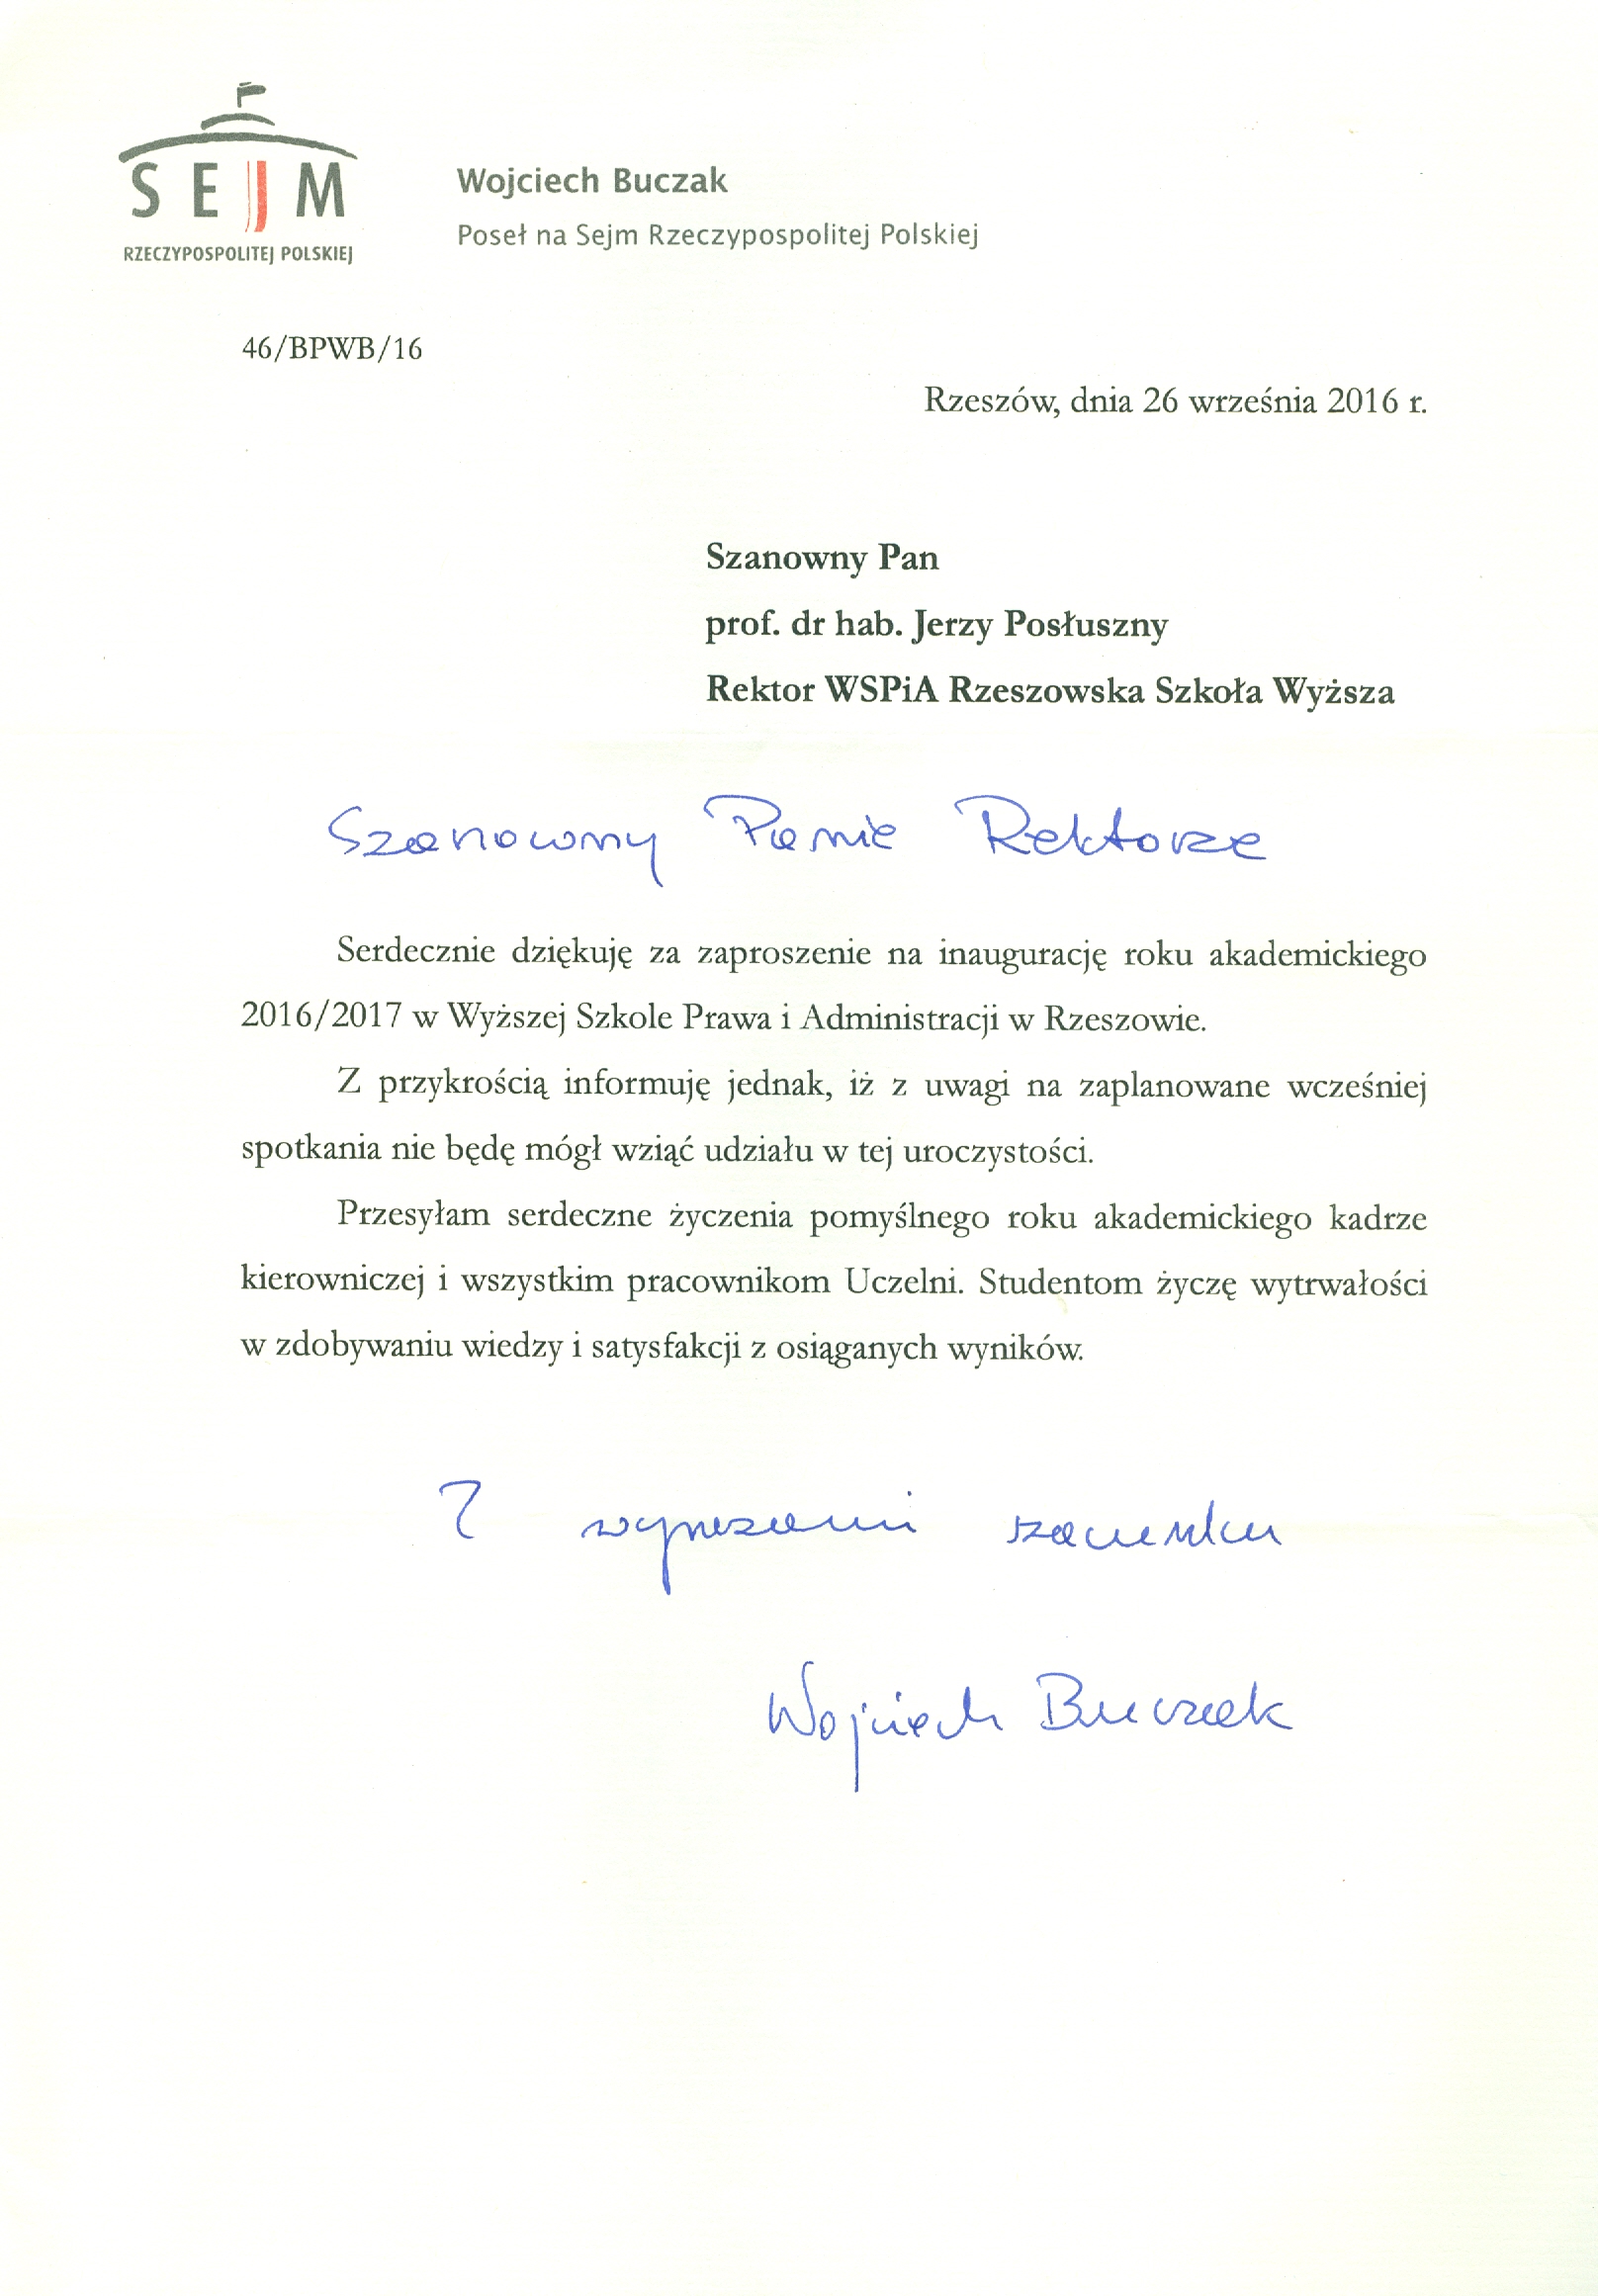 SEJM
RZECZYPOSPOLITEJ POLSKIEJ
Wojciech Buczak
Poseł na Sejm Rzeczypospolitej Polskiej
46/BPWB/16
Rzeszów, dnia 26 września 2016 r.
Szanowny Pan
prof. dr hab. Jerzy Posłuszny
Rektor WSPiA Rzeszowska Szkoła Wyższa
Szanowny Panie Rektorze
Serdecznie dziękuję za zaproszenie na inaugurację roku akademickiego
2016/2017 w Wyższej Szkole Prawa i Administracji w Rzeszowie.
Z przykrością informuję jednak, iż z uwagi na zaplanowane wcześniej
spotkania nie będę mógł wziąć udziału w tej uroczystości.
Przesyłam serdeczne życzenia pomyślnego roku akademickiego kadrze
kierowniczej i wszystkim pracownikom Uczelni. Studentom życzę wytrwałości
w zdobywaniu wiedzy i satysfakcji z osiąganych wyników.
Z wyrazami szacunku
Wojciech Buczak